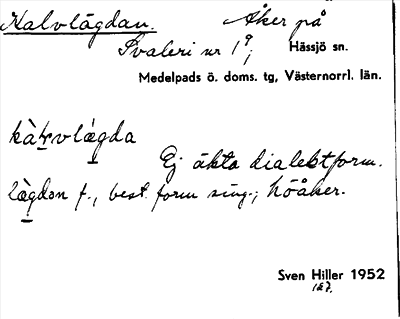 Halvlägdan. Åker på
Svaleri nr 1⁹; Hässjö sn.
Medelpads ö. doms. tg, Västernorrl. län.
Ej äkta dialektform.
lägdan f., best. form sing.; höåker.
Sven Hiller 1952